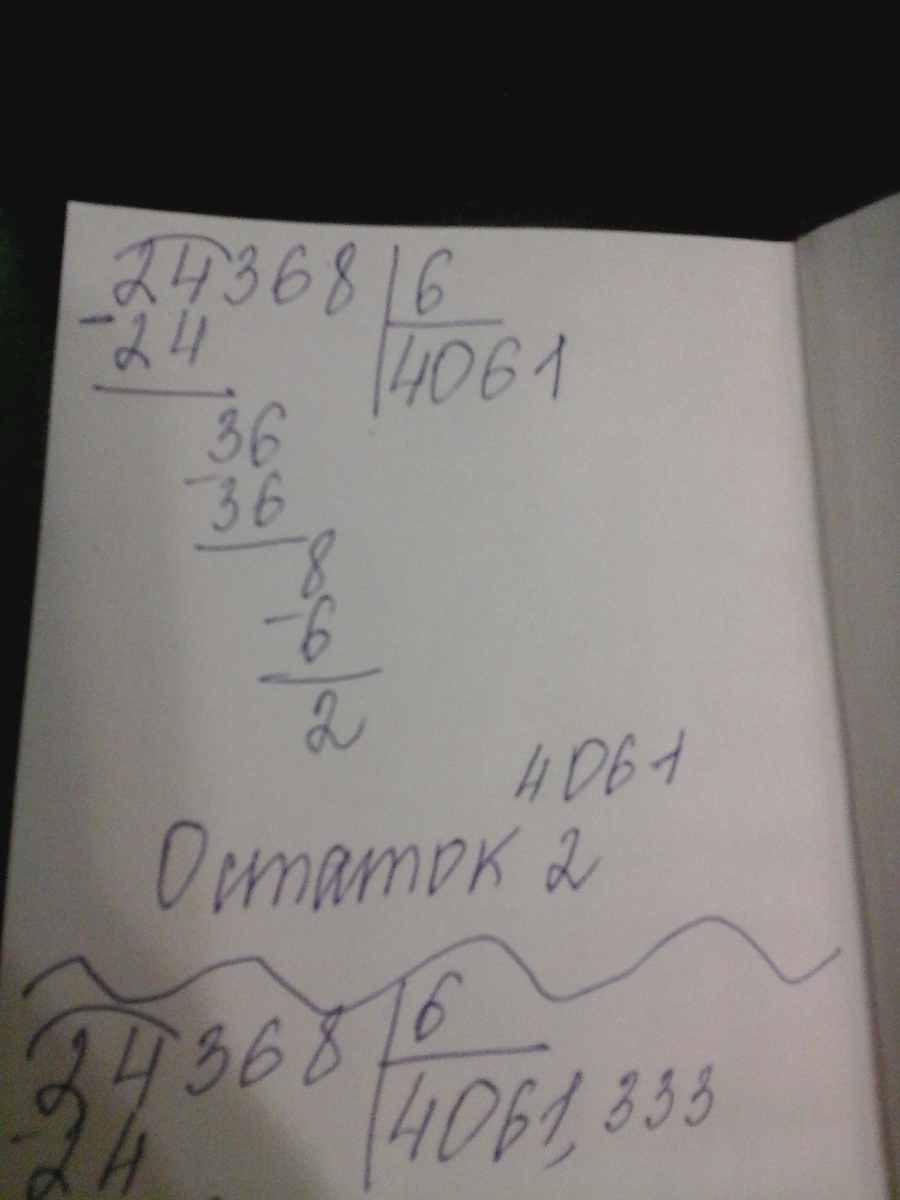 24368 | 6
- 24 | 4061
36
- 36
8
- 6
2
4061
Остаток 2
24368 | 6
- 24 | 4061,333